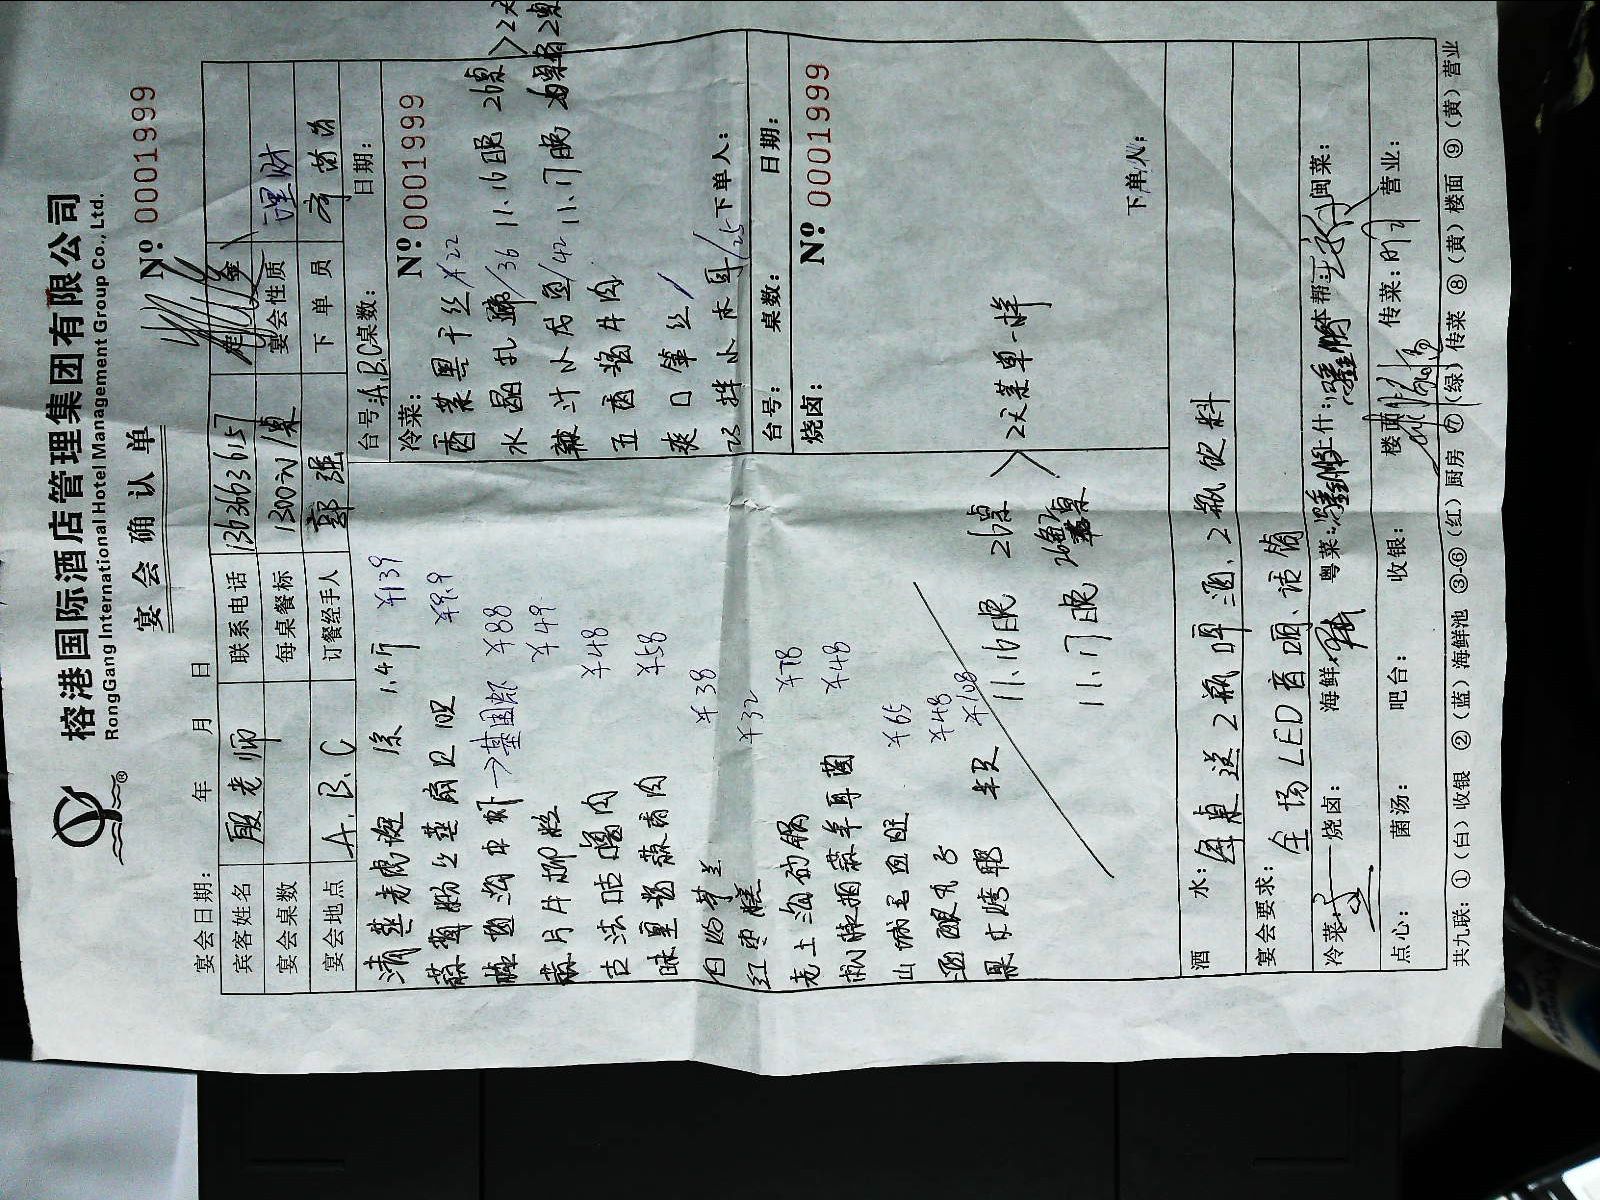 榕港国际酒店管理集团有限公司
RongGang International Hotel Management Group Co., Ltd.
宴会确认单
№ 0001999
宴会日期： 年 月 日
宾客姓名 殷老师 联系电话 13636036157 定金
宴会桌数 每桌餐标 1300元/桌 宴会性质 理财
宴会地点 A.B.C 订餐经手人 郭强 下单员
清蒸老虎斑 1条 1.4斤 ¥139
蒜茸粉丝蒸扇贝 ¥9.9
→基围虾 ¥88
蒜片牛柳粒 ¥49
古法 肉 ¥48
味皇酱蒜香肉 ¥58
白灼芥兰 ¥38
红枣糕 ¥32
老土 砂锅 ¥78
¥48
山城毛血旺 ¥65
酒酿丸子 ¥48
果木烤鸭 半只 ¥108
11.16晚 26桌
11.17晚
>2天菜单一样
台号：A,B,C 桌数： 日期：
冷菜： № 0001999
香菜黑干丝/¥22
水晶扎蹄/36 11.16晚 26桌
辣汁小 /42 11.17晚
五香酱牛肉
爽口笋丝/
拌小木耳/25 下单人：
台号： 桌数： 日期：
烧卤： № 0001999
下单人：
酒 水： 每桌送2瓶啤酒、2瓶饮料
宴会要求： 全场LED音响、话筒
冷菜： 烧卤： 海鲜 粤菜： 上什： 本帮： 闽菜：
点心： 菌汤： 吧台： 收银： 楼面 传菜： 营业：
共九联：①（白）收银 ②（蓝）海鲜池 ③-⑥（红）厨房 ⑦（绿）传菜 ⑧（黄）楼面 ⑨（黄）营业